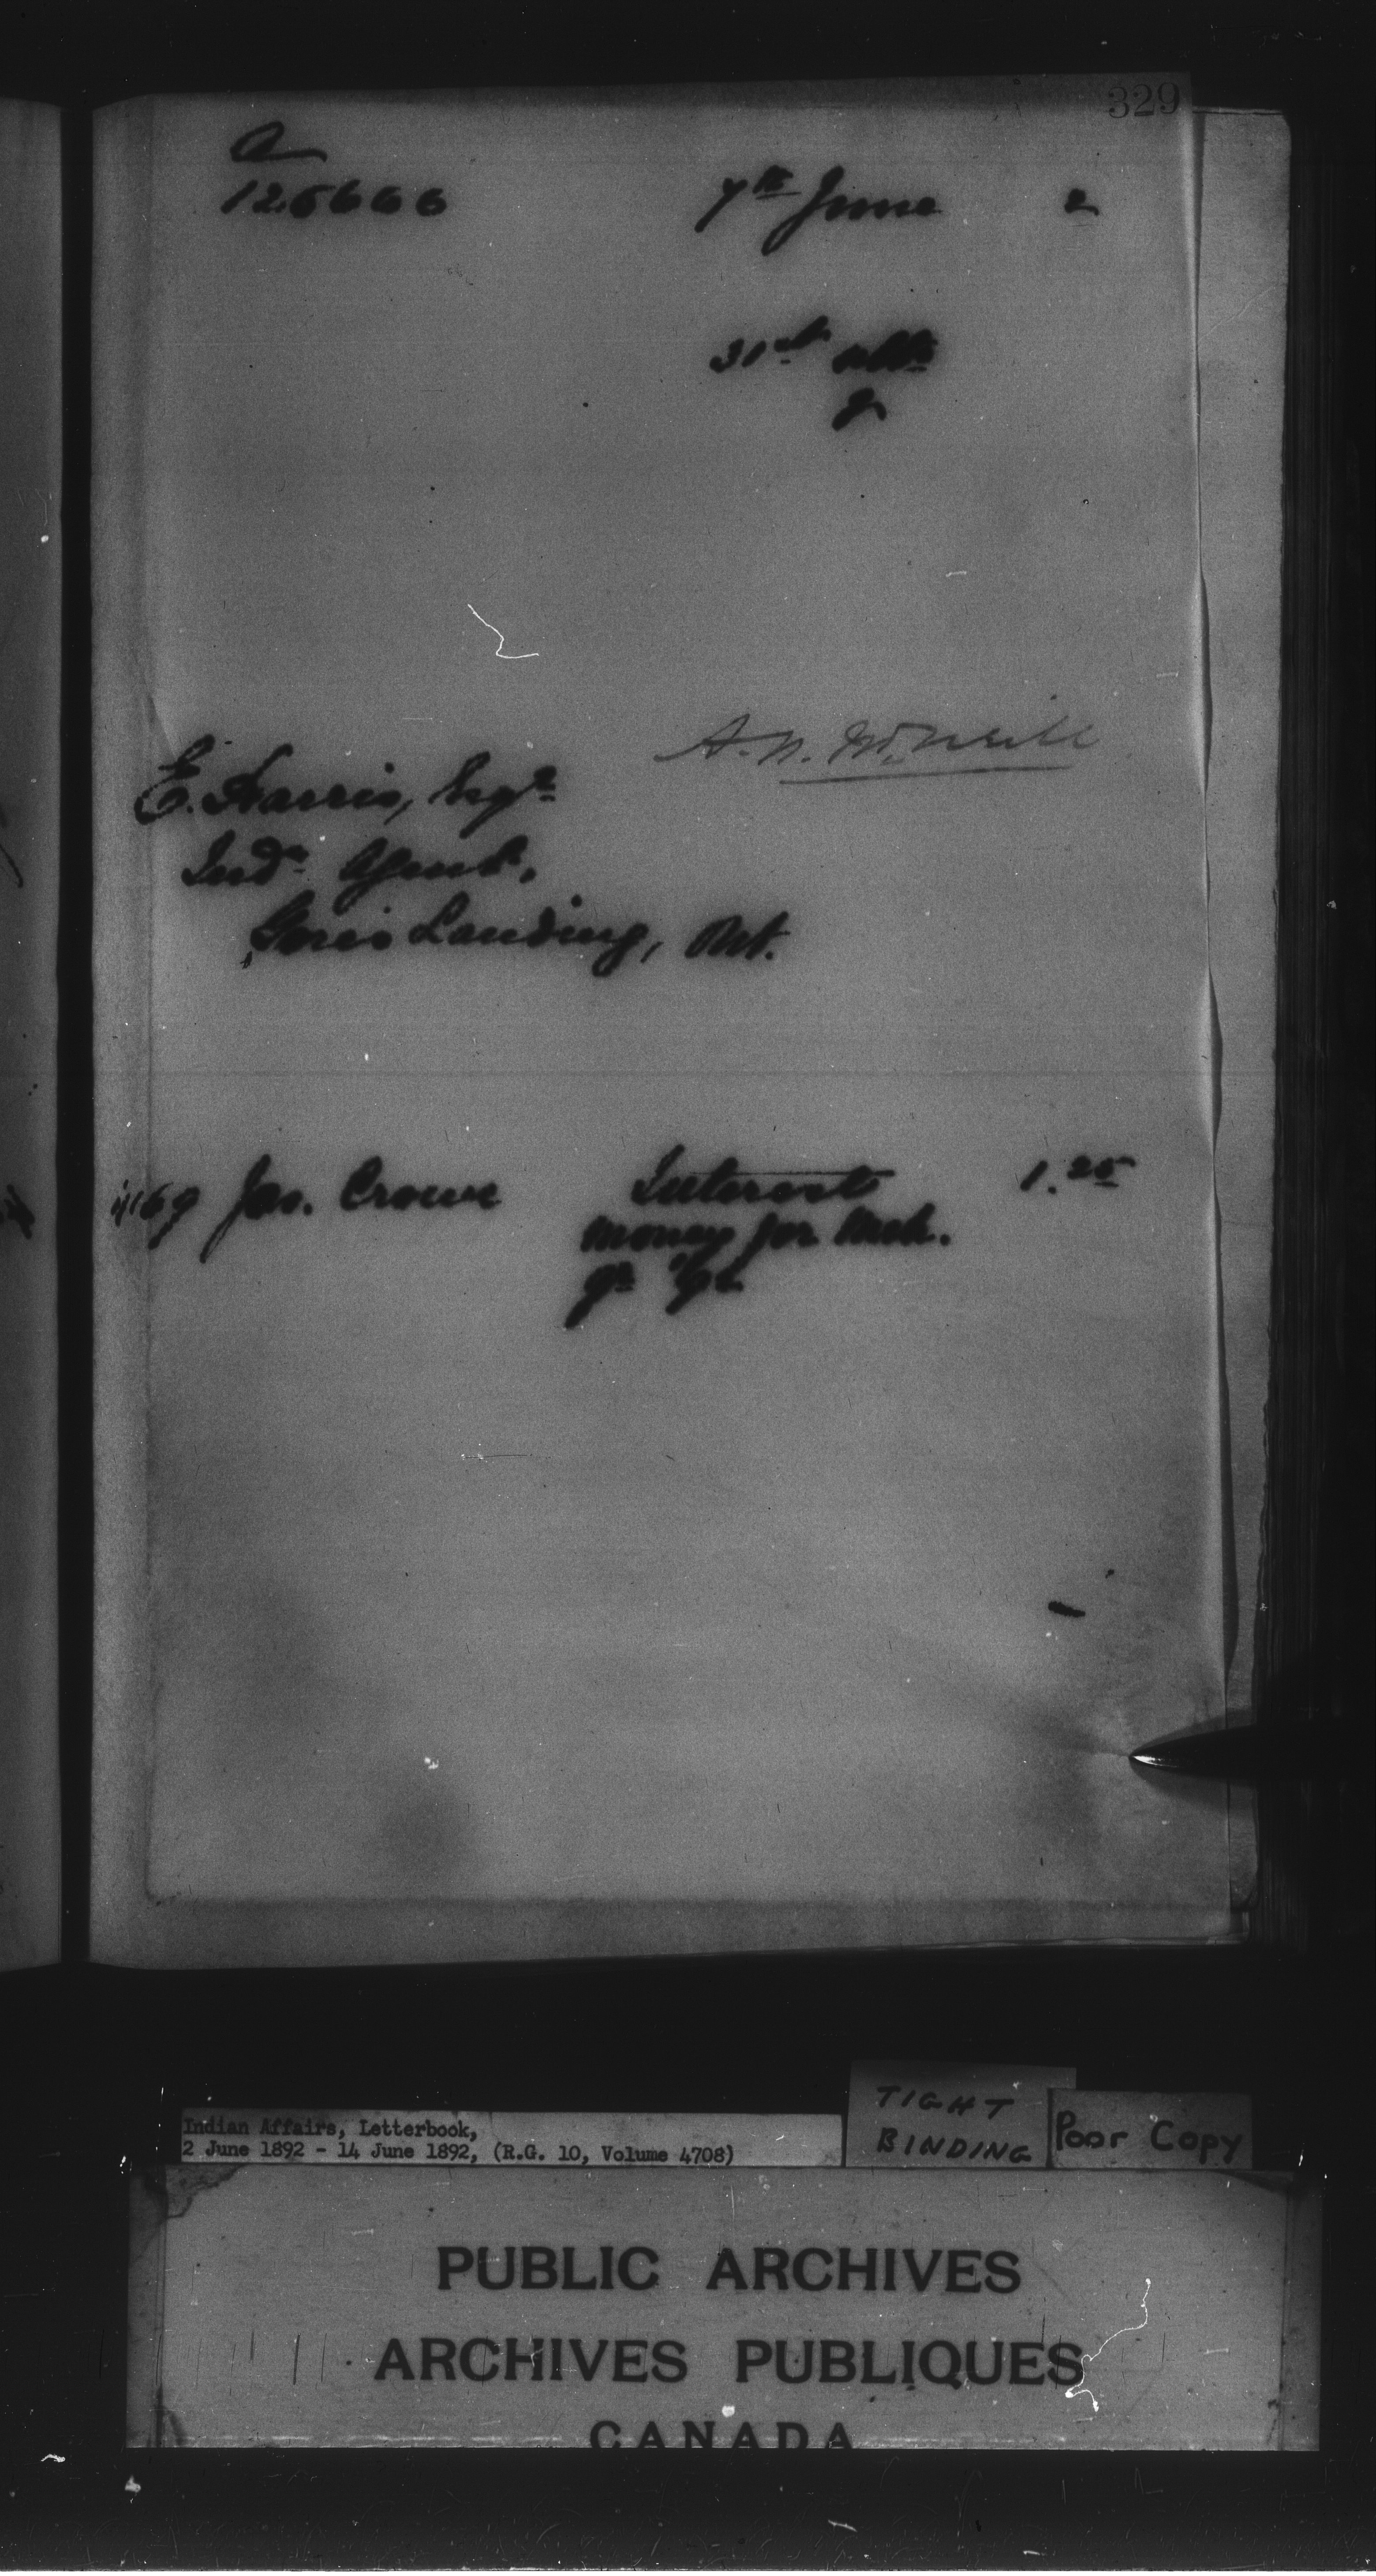 329
a
126666
7th June 2
31st ulto
A. N. McNeill
E. Harris, Esqr
Indn Agent,
Gores Landing, Ont.
4169 Jas. Crowe Interest 1.25
money for Mch.
qr '92
Indian Affairs, Letterbook,
2 June 1892 - 14 June 1892, (R.G. 10, Volume 4708)
TIGHT
BINDING
Poor Copy
PUBLIC ARCHIVES
ARCHIVES PUBLIQUES
CANADA